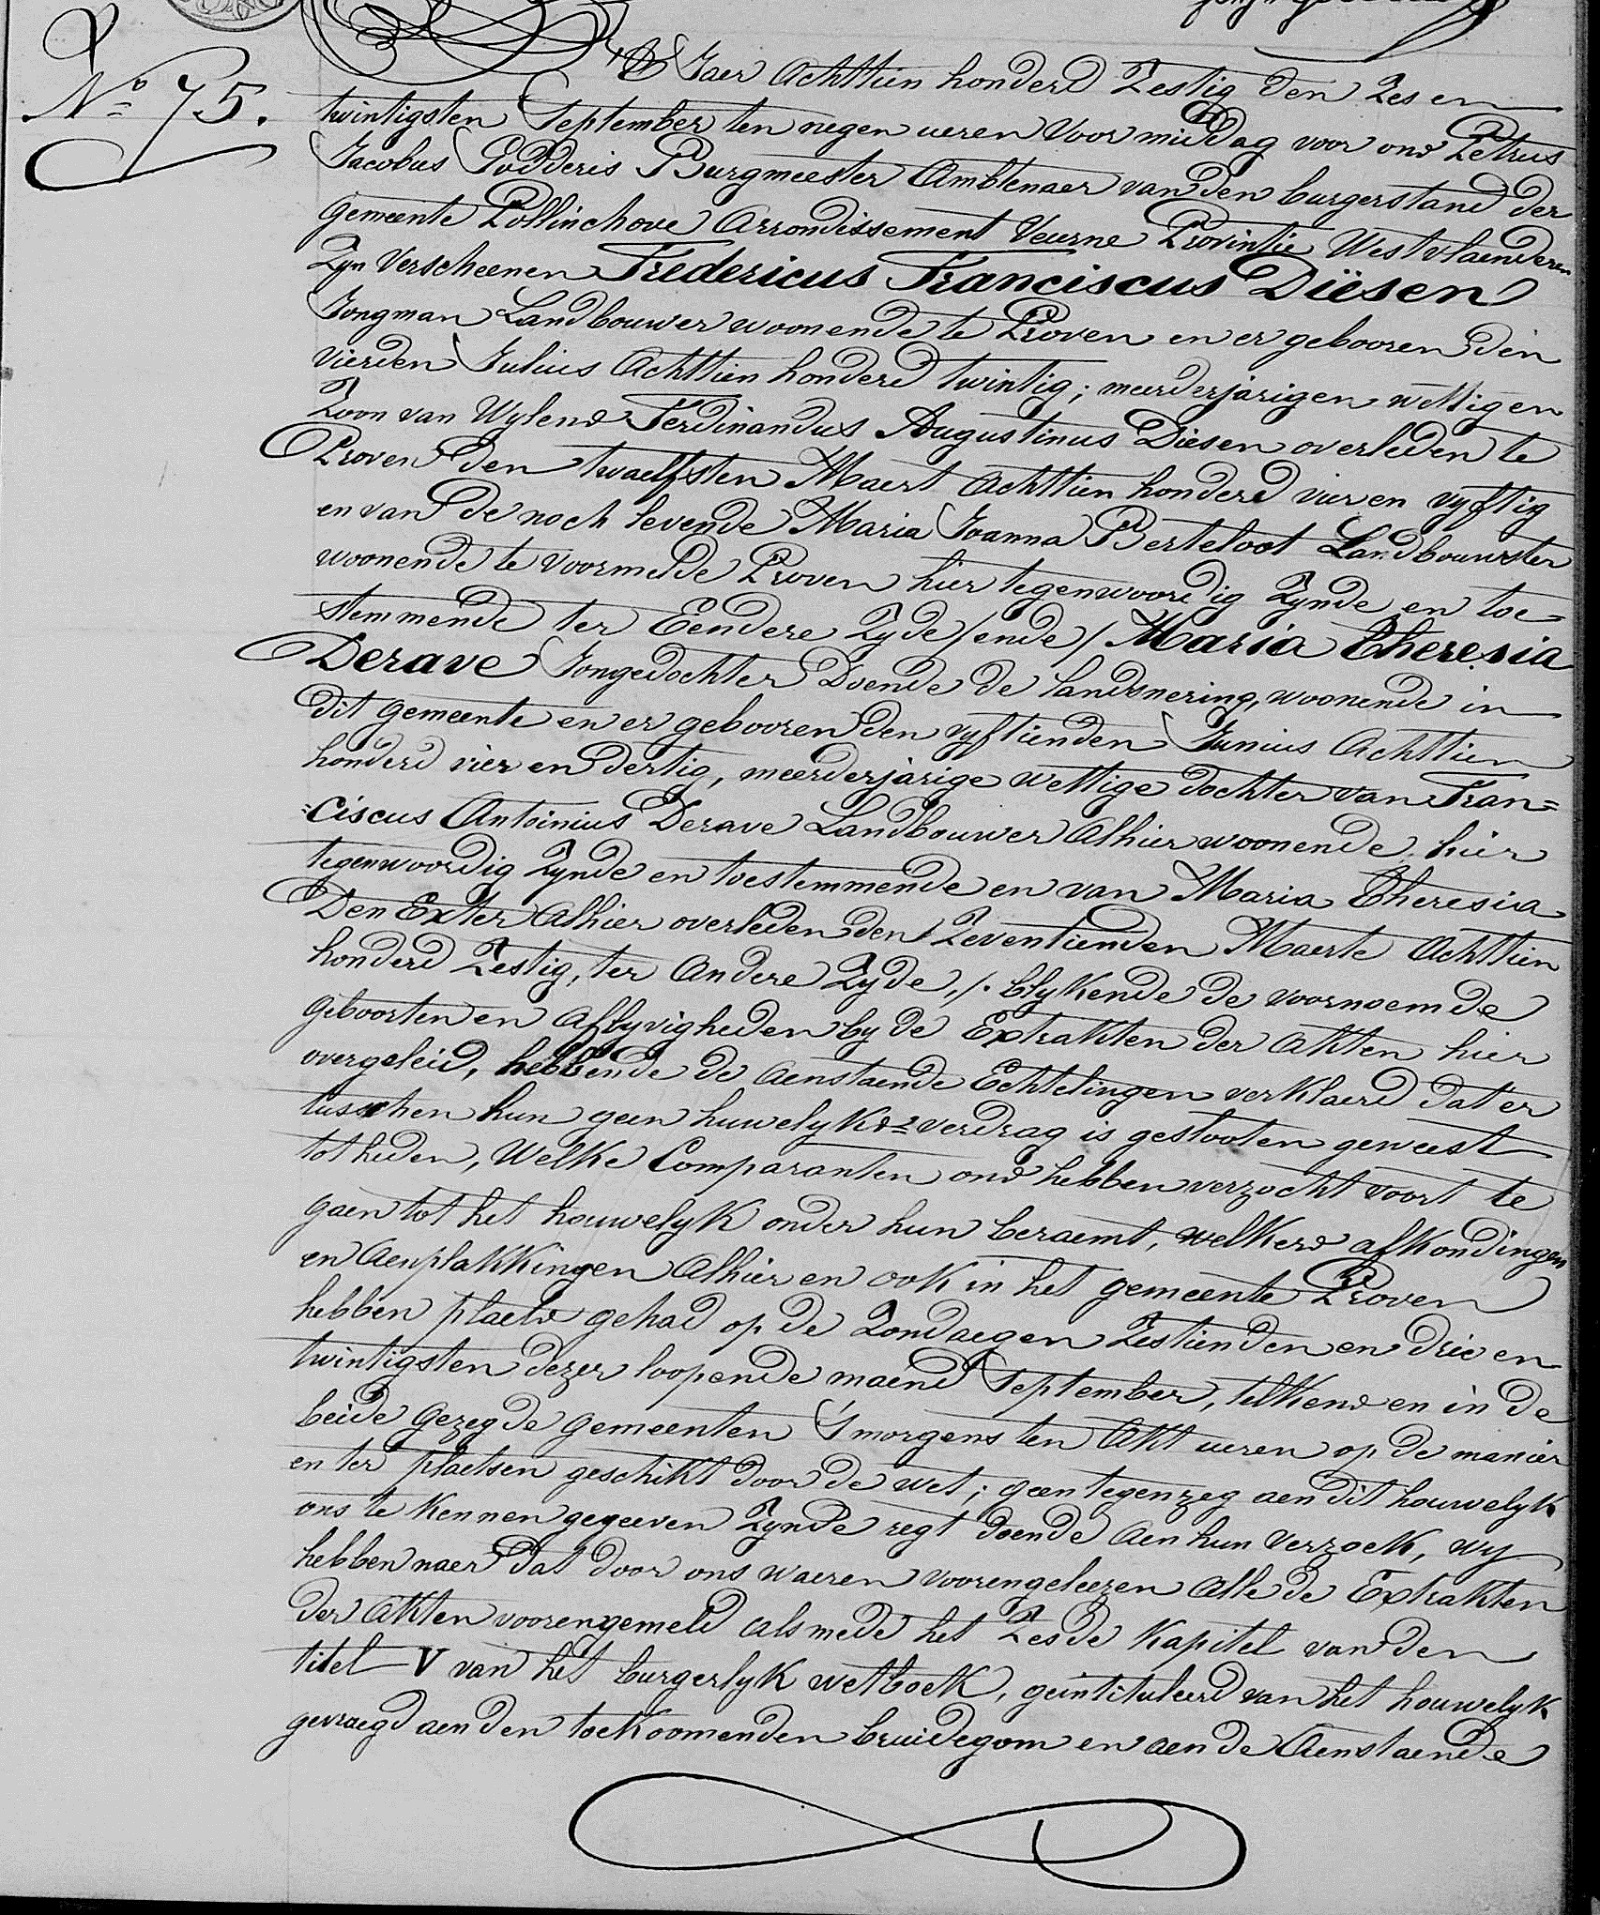 N° 75.
't Jaer Achttien honderd Zestig den Zes en
twintigsten September ten negen ueren voor middag voor ons Petrus
Jacobus Podderis Burgmeester Ambtenaer van den burgerstand der
gemeente Pollinchove Arrondissement Veurne Provintie Westvlaenderen
Zyn Verscheenen Fredericus Franciscus Diësen
Jongman Landbouwer woonende te Proven en er gebooren den
vierden Julius Achttien honderd twintig; meerderjarigen wettigen
Zoon van Wylens Ferdinandus Augustinus Diesen overleden te
Proven den twaelfsten Maert Achttien honderd vier en vyftig
en van de noch levende Maria Joanna Berteloot Landbouwster
woonende te voormelde Proven hier tegenwoordig Zynde en toe-
stemmende ter Eendere Zyde /ende/ Maria Theresia
Derave Jongedochter Doende de landsnering, woonende in
dit gemeente en er gebooren den vyftienden Junius Achttien
honderd vier en dertig, meerderjarige wettige dochter van Fran=
=ciscus Antoinius Derave Landbouwer Alhier woonende hier
tegenwoordig Zynde en toestemmende en van Maria Theresia
Den Exter Alhier overleden den Zeventienden Maerte Achttien
honderd Zestig, ter Andere Zyde, /. blykende de voornoemde
geboorten en Aflyvigheden by de Extrakten der Akten hier
overgeleid, hebbende de Aenstaende Echtelingen verklaerd dat er
tusschen hun geen huwelyks=verdrag is geslooten geweest
tot heden, Welke Comparanten ons hebben verzocht voort te
gaen tot het houwelyk onder hun beraemt, welkers afkondingen
en Aenplakkingen Alhier en ook in het gemeente Proven
hebben plaets gehad op de Zondaegen Zestienden en drie en
twintigsten dezer loopende maend September, telkens en in de
beide gezegde gemeenten 's morgens ten Akt ueren op de manier
en ter plaetsen geschikt door de wet; geen tegenzeg aen dit houwelyk
ons te kennen gegeeven Zynde regt doende Aen hun verzoek, wy
hebben naer dat door ons waeren voorengeleezen Alle de Extrakten
der Akten voorengemeld als mede het Zesde Kapitel van den
titel V van het burgerlyk wetboek, geintituleerd van het houwelyk
gevraegd aen den toekoomenden bruidegom en aen de Aenstaende